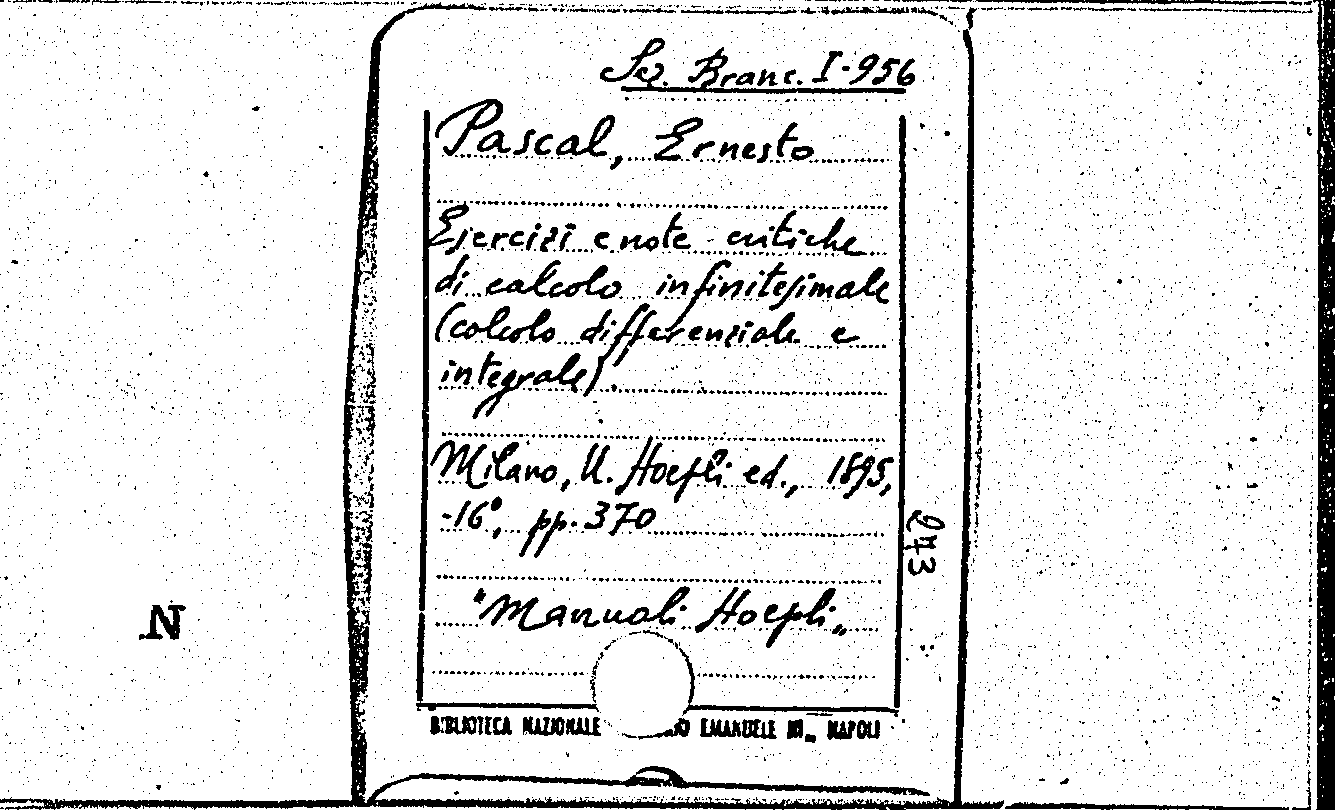 Sez. Branc. I-956
Pascal, Ernesto
Esercizi e note critiche
di calcolo infinitesimale
(calcolo differenziale e
integrale).
Milano, U. Hoepli ed., 1895,
-16°, pp. 370
243
"Manuali Hoepli„
N
BIBLIOTECA NAZIONALE EMANUELE III„ NAPOLI